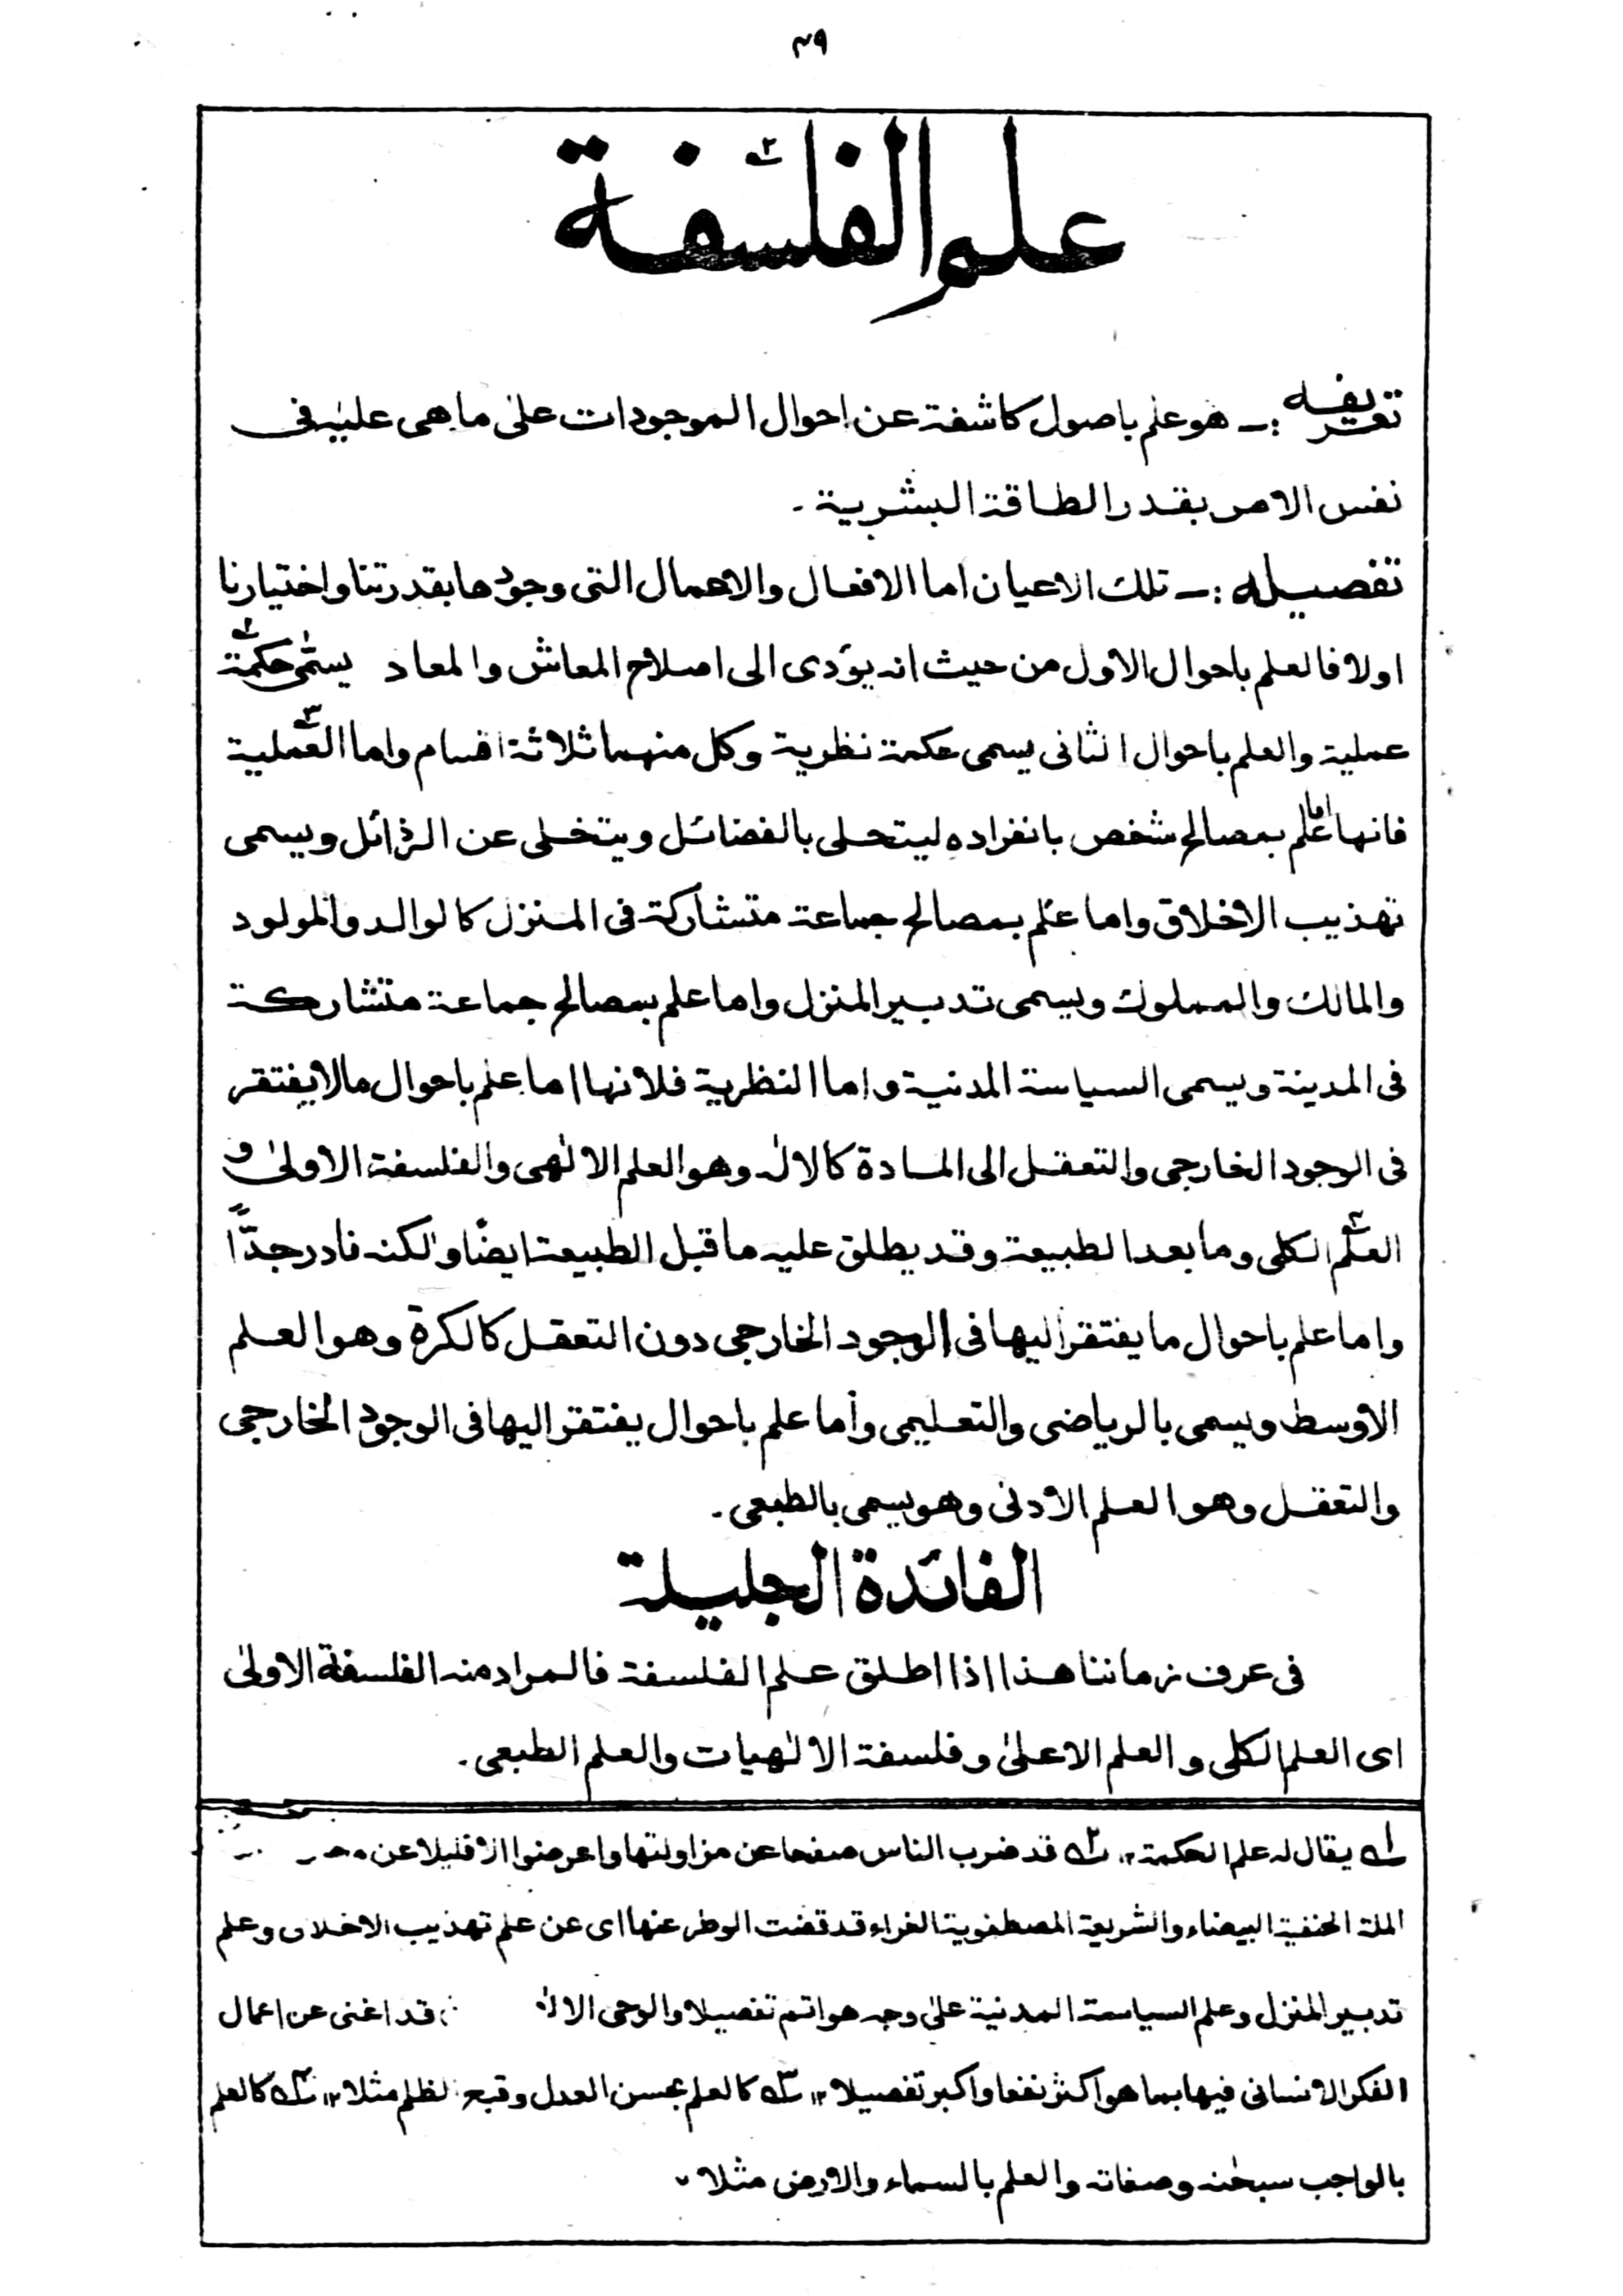 ٣٩
علم الفلسفة
تعريفه :ـ هو علم باصول كاشفة عن احوال الموجودات علیٰ ما هی علیٰه فی
نفس الامر بقدر الطاقة البشرية ۔
تفصيله :ـ تلك الاعيان اما الافعال والاعمال التی وجودها بقدرتنا واختيارنا
اولا فالعلم باحوال الاول من حيث انه يؤدی الی اصلاح المعاش والمعاد يسمّٰی حكمة
عملية والعلم باحوال الثانی يسمی حكمة نظرية وكل منهما ثلاثة اقسام واما العملية
فانها اما علم بمصالح شخص بانفراده ليتحلی بالفضائل ويتخلی عن الرذائل ويسمی
تهذيب الاخلاق واما علم بمصالح جماعة متشاركة فی المنزل كالوالد والمولود
والمالك والمملوك ويسمی تدبير المنزل واما علم بمصالح جماعة متشاركة
فی المدينة ويسمی السياسة المدنية واما النظرية فلانها اما علم باحوال مالا يفتقر
فی الوجود الخارجی والتعقل الی المادة كالالٰه وهو العلم الالٰهی والفلسفة الاولیٰ و
العلم الكلی وما بعد الطبيعة وقد يطلق عليه ما قبل الطبيعة ايضًا ولكنه نادر جدًّا
واما علم باحوال ما يفتقر اليها فی الوجود الخارجی دون التعقل كالكرة وهو العلم
الاوسط ويسمی بالرياضی والتعليمی وأما علم باحوال يفتقر اليها فی الوجود الخارجی
والتعقل وهو العلم الادنی وهو يسمی بالطبعی ۔
الفائدة الجليلة
فی عرف زماننا هذا اذا اطلق علم الفلسفة فالمراد منه الفلسفة الاولیٰ
ای العلم الكلی و العلم الاعلیٰ و فلسفة الالٰهيات والعلم الطبعی ۔
١؎ يقال له علم الحكمة ١٢ ٢؎ قد ضرب الناس صفحا عن مزاولتها واعرضوا الا قليلا عن
الملة الحنفية البيضاء والشريعة المصطفوية الغراء قد قضت الوطر عنها ای عن علم تهذيب الاخلاق وعلم
تدبير المنزل وعلم السياسة المدنية علیٰ وجه هو اتم تفصيلا والوحی الالٰهی قد اغنی عن اعمال
الفكر الانسانی فيها بما هو اكثر نفعا واكبر تفصيلا ١٢ ٣؎ كالعلم بحسن العدل وقبح الظلم مثلا ١٢ ٤؎ كالعلم
بالواجب سبحٰنه وصفاته والعلم بالسماء والارض مثلا